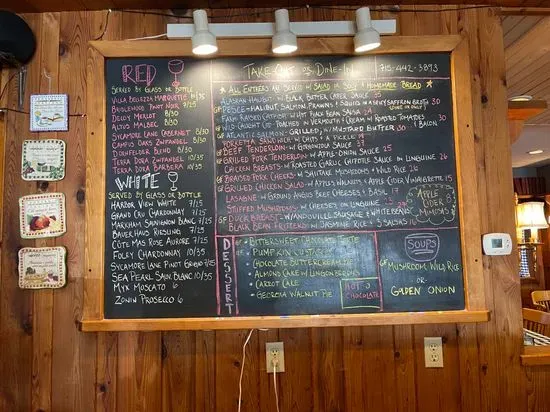 RED
SERVED BY GLASS OR BOTTLE
VILLA BELLEZZA MARQUETTE 10/35
BRISLENNING PINOT NOIR 7/25
DELOY MERLOT 8/30
ALTOS MALBEC 8/30
SYCAMORE LANE CABERNET 8/30
CAMPUS OAKS ZINFANDEL 8/30
DORNFELDER BLEND 8/30
TERRA DORA ZINFANDEL 10/35
TERRA DORA BARBERA 10/35
WHITE
SERVED BY GLASS OR BOTTLE
HARBOR VIEW WHITE 7/25
GRAND CRU CHARDONNAY 7/25
MARKHAM SAUVIGNON BLANC 7/25
BAUERHAUS RIESLING 7/25
CÔTE MAS ROSE AURORE 7/25
FOLEY CHARDONNAY 10/35
SYCAMORE LANE PINOT GRIGIO 7/25
SEA PEARL SAUV BLANC 10/35
MYX MOSCATO 6
ZONIN PROSECCO 6
TAKE-OUT OR DINE-IN
715-442-3893
★ ALL ENTREES ARE SERVED W/ SALAD OR SOUP & HOMEMADE BREAD ★
ALASKAN HALIBUT W/ BLACK BUTTER CAPER SAUCE 35
GF PESCE - HALIBUT, SALMON, PRAWNS & SQUID IN SAFFRON BROTH 30
FARM RAISED CATFISH W/ HOT BLACK BEAN SALSA 24
GF WILD CAUGHT COD POACHED IN VERMOUTH & CREAM W/ ROASTED TOMATOES & BACON 30
GF ATLANTIC SALMON - GRILLED, W/ MUSTARD BUTTER 30
PORKETTA SANDWICH W/ CHIPS & A PICKLE 14
BEEF TENDERLOIN W/ GORGONZOLA SAUCE 33
GF GRILLED PORK TENDERLOIN W/ APPLE-ONION SAUCE 25
CHICKEN BREASTS W/ ROASTED GARLIC CHIPOTLE SAUCE ON LINGUINE 26
GF BRAISED PORK CHEEKS W/ SHIITAKE MUSHROOMS & WILD RICE 26
GF GRILLED CHICKEN SALAD W/ APPLES WALNUTS & APPLE CIDER VINAIGRETTE 15
LASAGNE W/ GROUND ANGUS BEEF CHEESES & BASIL
STUFFED MUSHROOMS W/ CHEESES ON LINGUINE 23
GF DUCK BREAST W/ ANDOUILLE SAUSAGE & WHITE BEANS
BLACK BEAN FRIJENDI W/ PRAWNS OR TENDERLOIN & 3 SALSAS 16
APPLE
CIDER
MIMOSAS
DESSERT
BITTERSWEET CHOCOLATE TORTE
PUMPKIN CUSTARD
CHOCOLATE BUTTERCREAM PIE
ALMOND CAKE W/ LINGONBERRIES
CARROT CAKE
GEORGIA WALNUT PIE
HOT
CHOCOLATE
SOUPS
GF MUSHROOM WILD RICE
OR
GOLDEN ONION